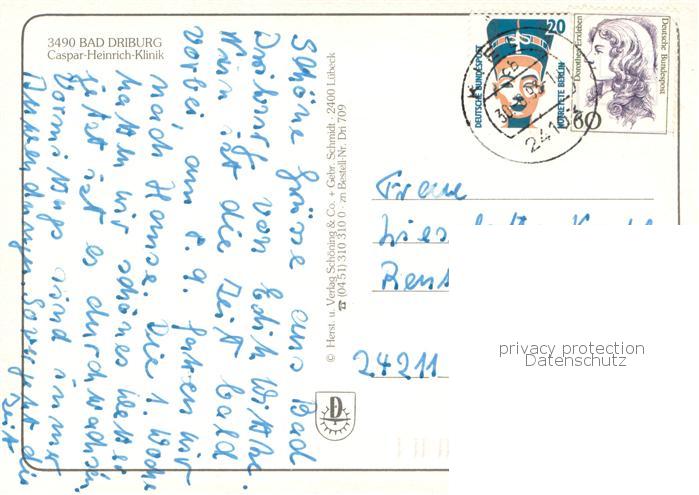 3490 BAD DRIBURG
Caspar-Heinrich-Klinik
Schöne Grüsse aus Bad
Driburg von Edith Witthe.
Nun ist die Zeit bald
vorbei am 8.9. fahren wir
nach Hause. Die 1. Woche
hatten wir schönes Wetter
jetzt ist es durchwachsen.
Vormittags sind immer
Anwendungen. So vergeht die
Zeit
© Herst. u. Verlag Schöning & Co. + Gebr. Schmidt · 2400 Lübeck
☎ (04 51) 310 310 0 · zn Bestell-Nr. Dri 709
DEUTSCHE BUNDESPOST
20
NOFRETETE BERLIN
Dorothea Erxleben
Deutsche Bundespost
60
241
Frau
Lies
24211
privacy protection
Datenschutz